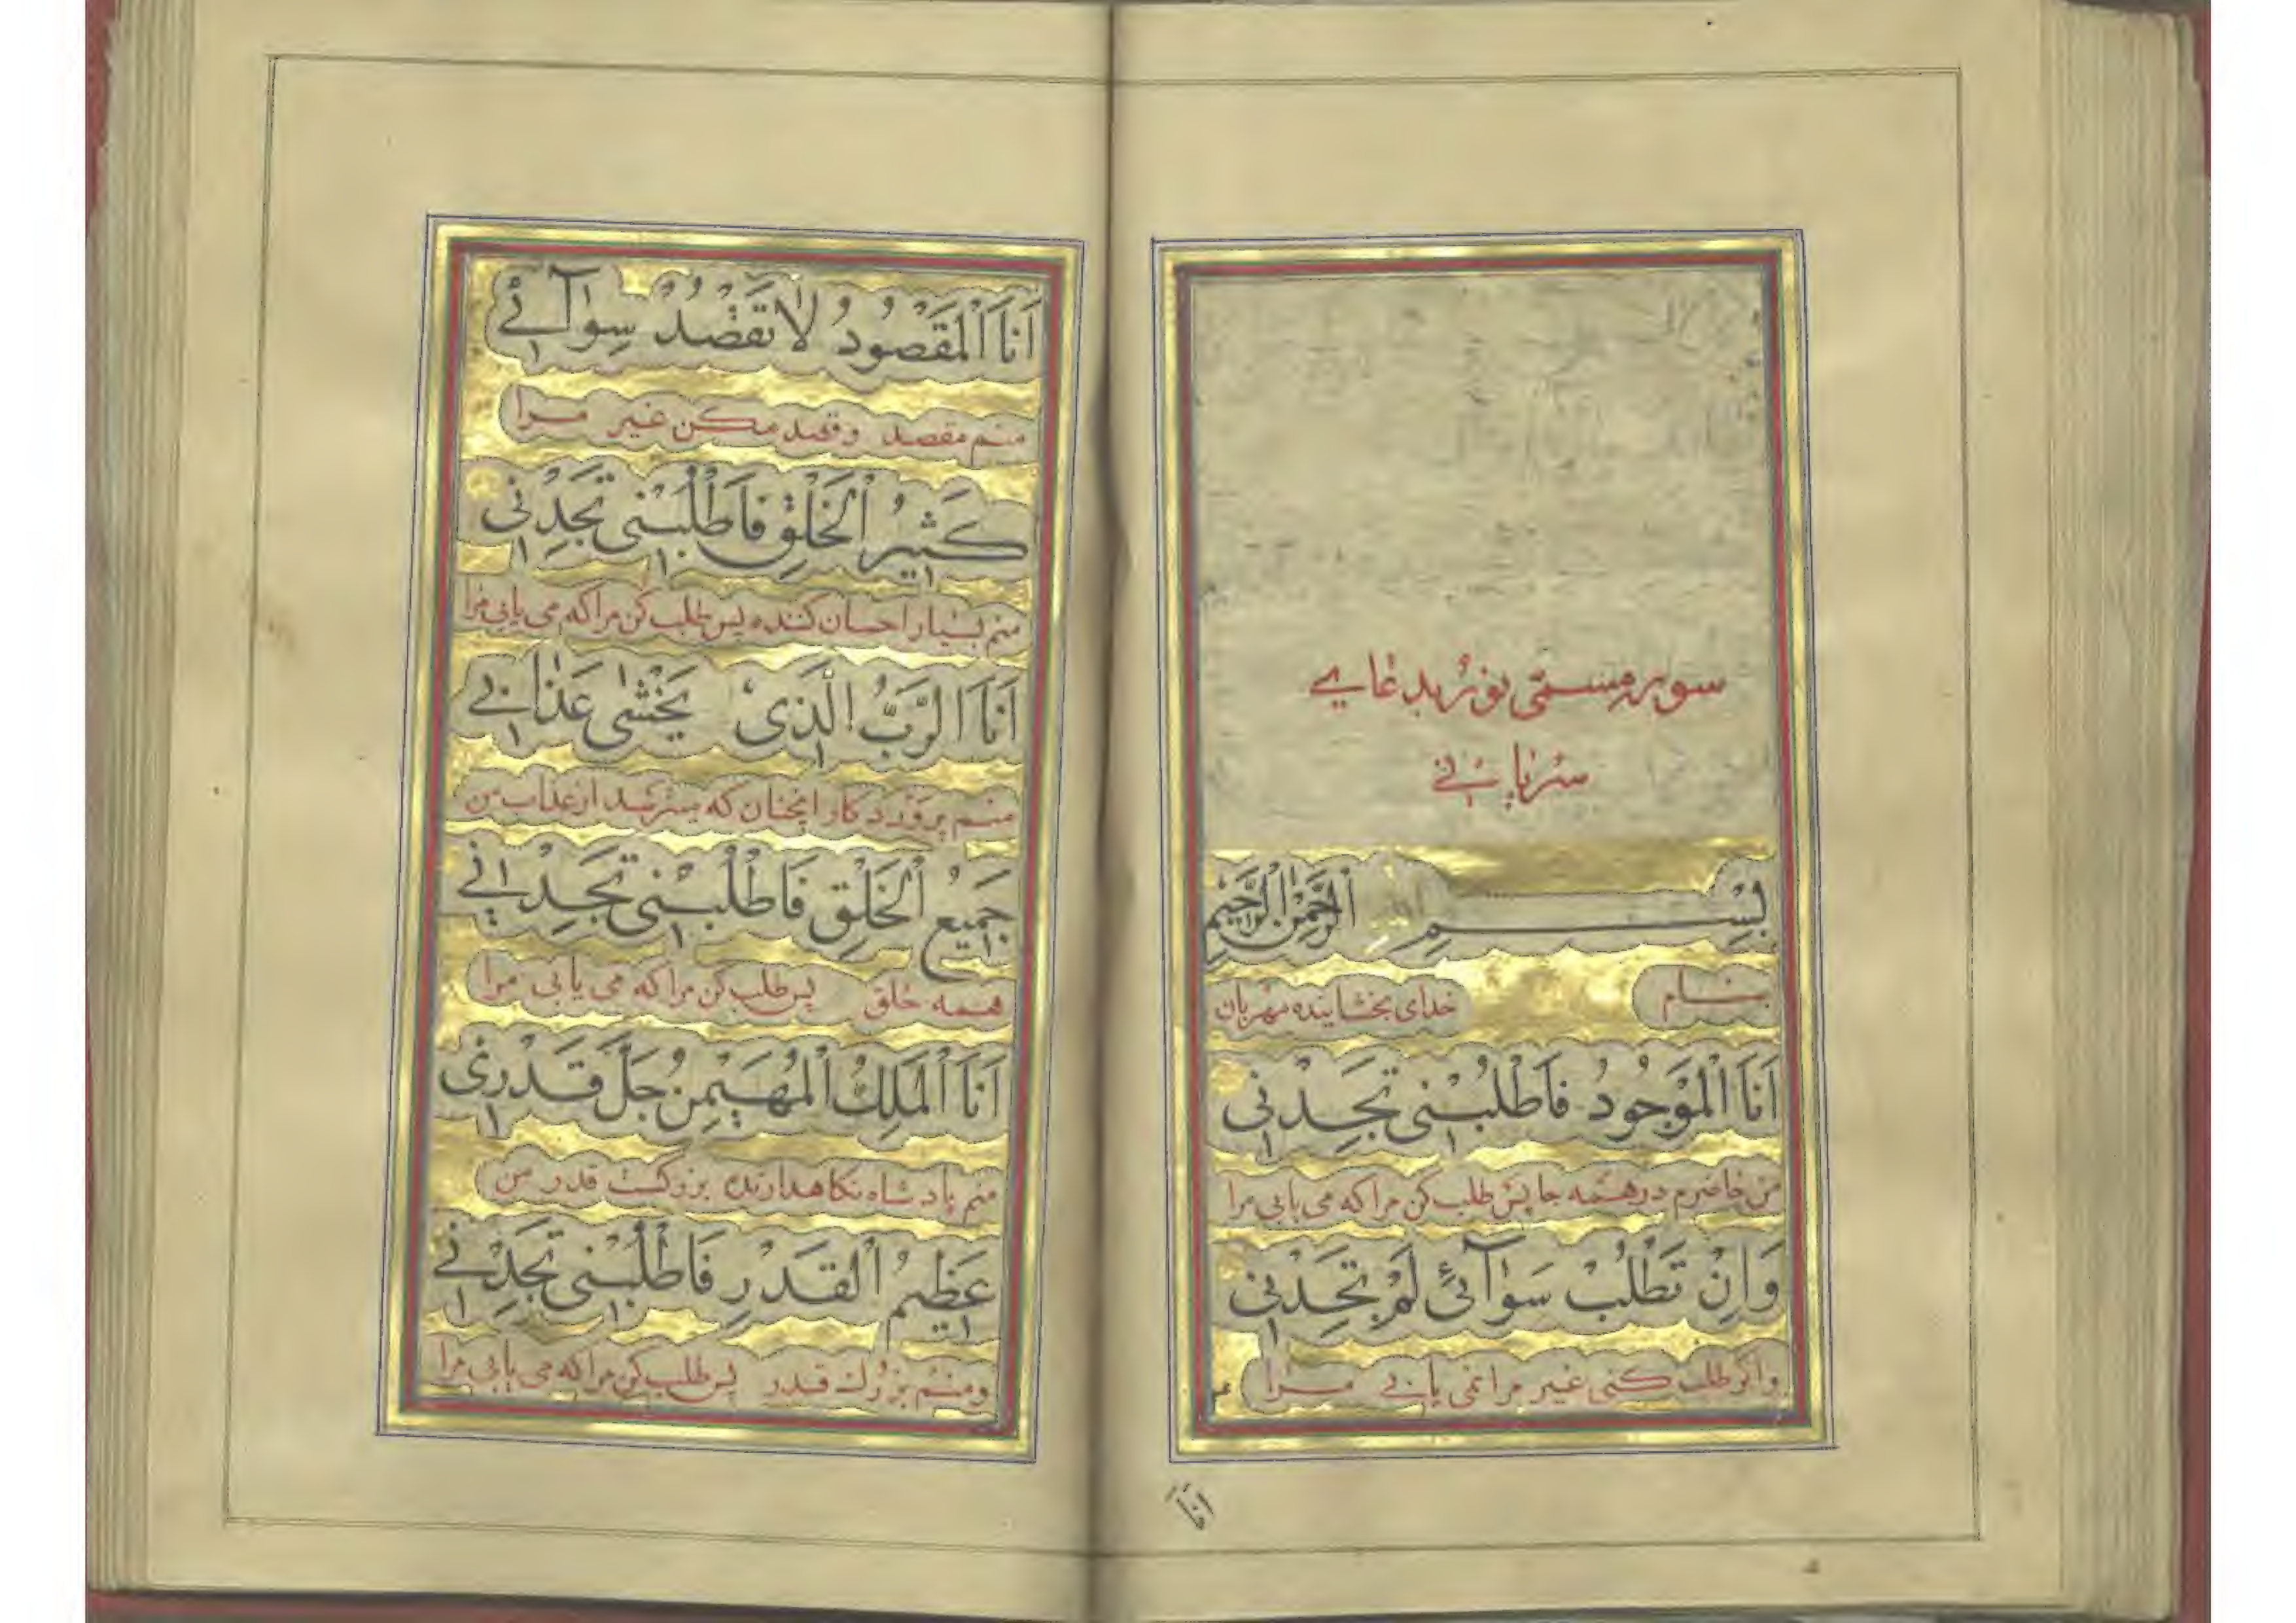 سوره مسمی بدعای
سریانی
بِسْمِ اللهِ الرَّحْمٰنِ الرَّحِیمِ
بنام خدای بخشاینده مهربان
اَنَا الْمَوْجُودُ فَاطْلُبْنِی تَجِدْنِی
من حاضرم در همه جا پس طلب کن مرا که می یابی مرا
وَاِنْ تَطْلُبْ سَوٰآئی لَمْ تَجِدْنِی
واکر طلب کنی غیر مرا نمی یابی مرا
اَنَا
اَنَا الْمَقْصُودُ لَا تَقْصُدْ سِوٰآئے
منم مقصد و قصد مکن غیر مرا
کَثیرُ الْخَلْقِ فَاطْلُبْنی تَجِدْنی
منم بسیار احسان کننده پس طلب کن مرا که می یابی مرا
اَنَا الرَّبُّ الَّذی یَخْشٰی عَذٰابے
منم پروردکار انچنان که بترسد از عذاب من
جَمیعُ الْخَلْقِ فَاطْلُبْنی تَجِدْنی
همه خلق پس طلب کن مرا که می یابی مرا
اَنَا الْمَلِكُ الْمُهَیْمِنُ جَلَّ قَدْری
منم پادشاه نکاهدارنده بزرکست قدر من
عَظیمُ الْقَدْرِ فَاطْلُبْنی تَجِدْنے
ومنم بزرك قدر پس طلب کن مرا که می یابی مرا